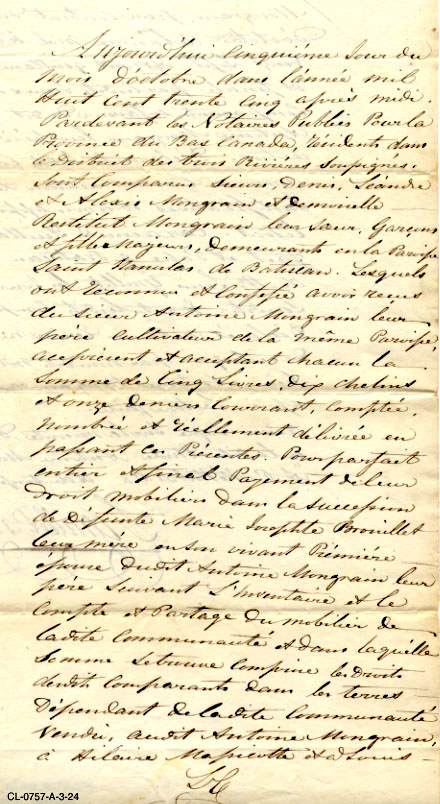 Aujourd'hui Cinquiéme Jour du
mois d'octobre dans l'année mil
Huit Cent trente Cinq après midi.
Pardevant les Notaires Publics Pour la
Province du Bas Canada, Residents dans
le District des trois Rivières soussignés.
Sont Comparus Sieurs, Denis, Léandre
et Alexis Mongrain et demoiselle
Restitut Mongrain leur sœur, Garçons
et fille Majeurs, demeurants en la Paroisse
Saint Stanislas de Batiscan. Lesquels
ont Reconnu et Confessé avoir reçus
du sieur Antoine Mongrain leur
père Cultivateur de la même Paroisse,
à ce présent et acceptant chacun la
Somme de Cinq Livres, dix chelins
et onze deniers Courant, Comptée,
Nombrée et Réellement délivrée en
passant Ces Présentes. Pour parfait
entier et final Payement de leur
Droit mobiliers dans la succession
de Défunte Marie Josephte Brouillet
leur mére en son vivant Premiére
épouse dudit Antoine Mongrain leur
père Suivant l'Inventaire et le
Compte et Partage du mobilier de
ladite Communauté et dans laquélle
Somme Se trouve Comprise les Droits
desdits Comparants dans les terres
Dépendant de ladite Communauté
Vendu, audit Antoine Mongrain,
à Hilaire Massicotte et à Louis
CL-0757-A-3-24